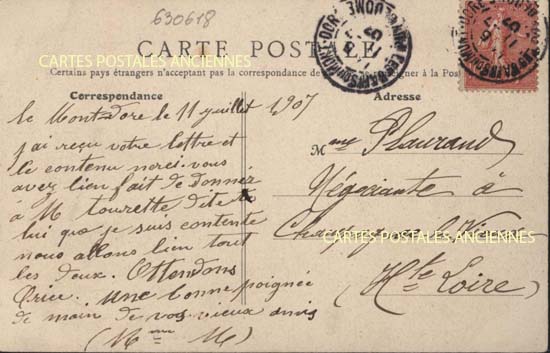 630618
CARTE POSTALE
Certains pays étrangers n'acceptant pas la correspondance de à la Post
Correspondance
Adresse
le Mont-Dore le 11 juillet 1907
j'ai reçu votre lettre et
le contenu merci. vous
avez bien fait de donner
à M tourette dite
lui que je suis contente
nous allons bien tout
les deux. Attendons
Une bonne poignée
de main de vos vieux amis
(M me M)
Mme Plaurand
Négociante à
CARTES POSTALES ANCIENNES
(Hte Loire)
CARTES POSTALES ANCIENNES
CARTES POSTALES ANCIENNES